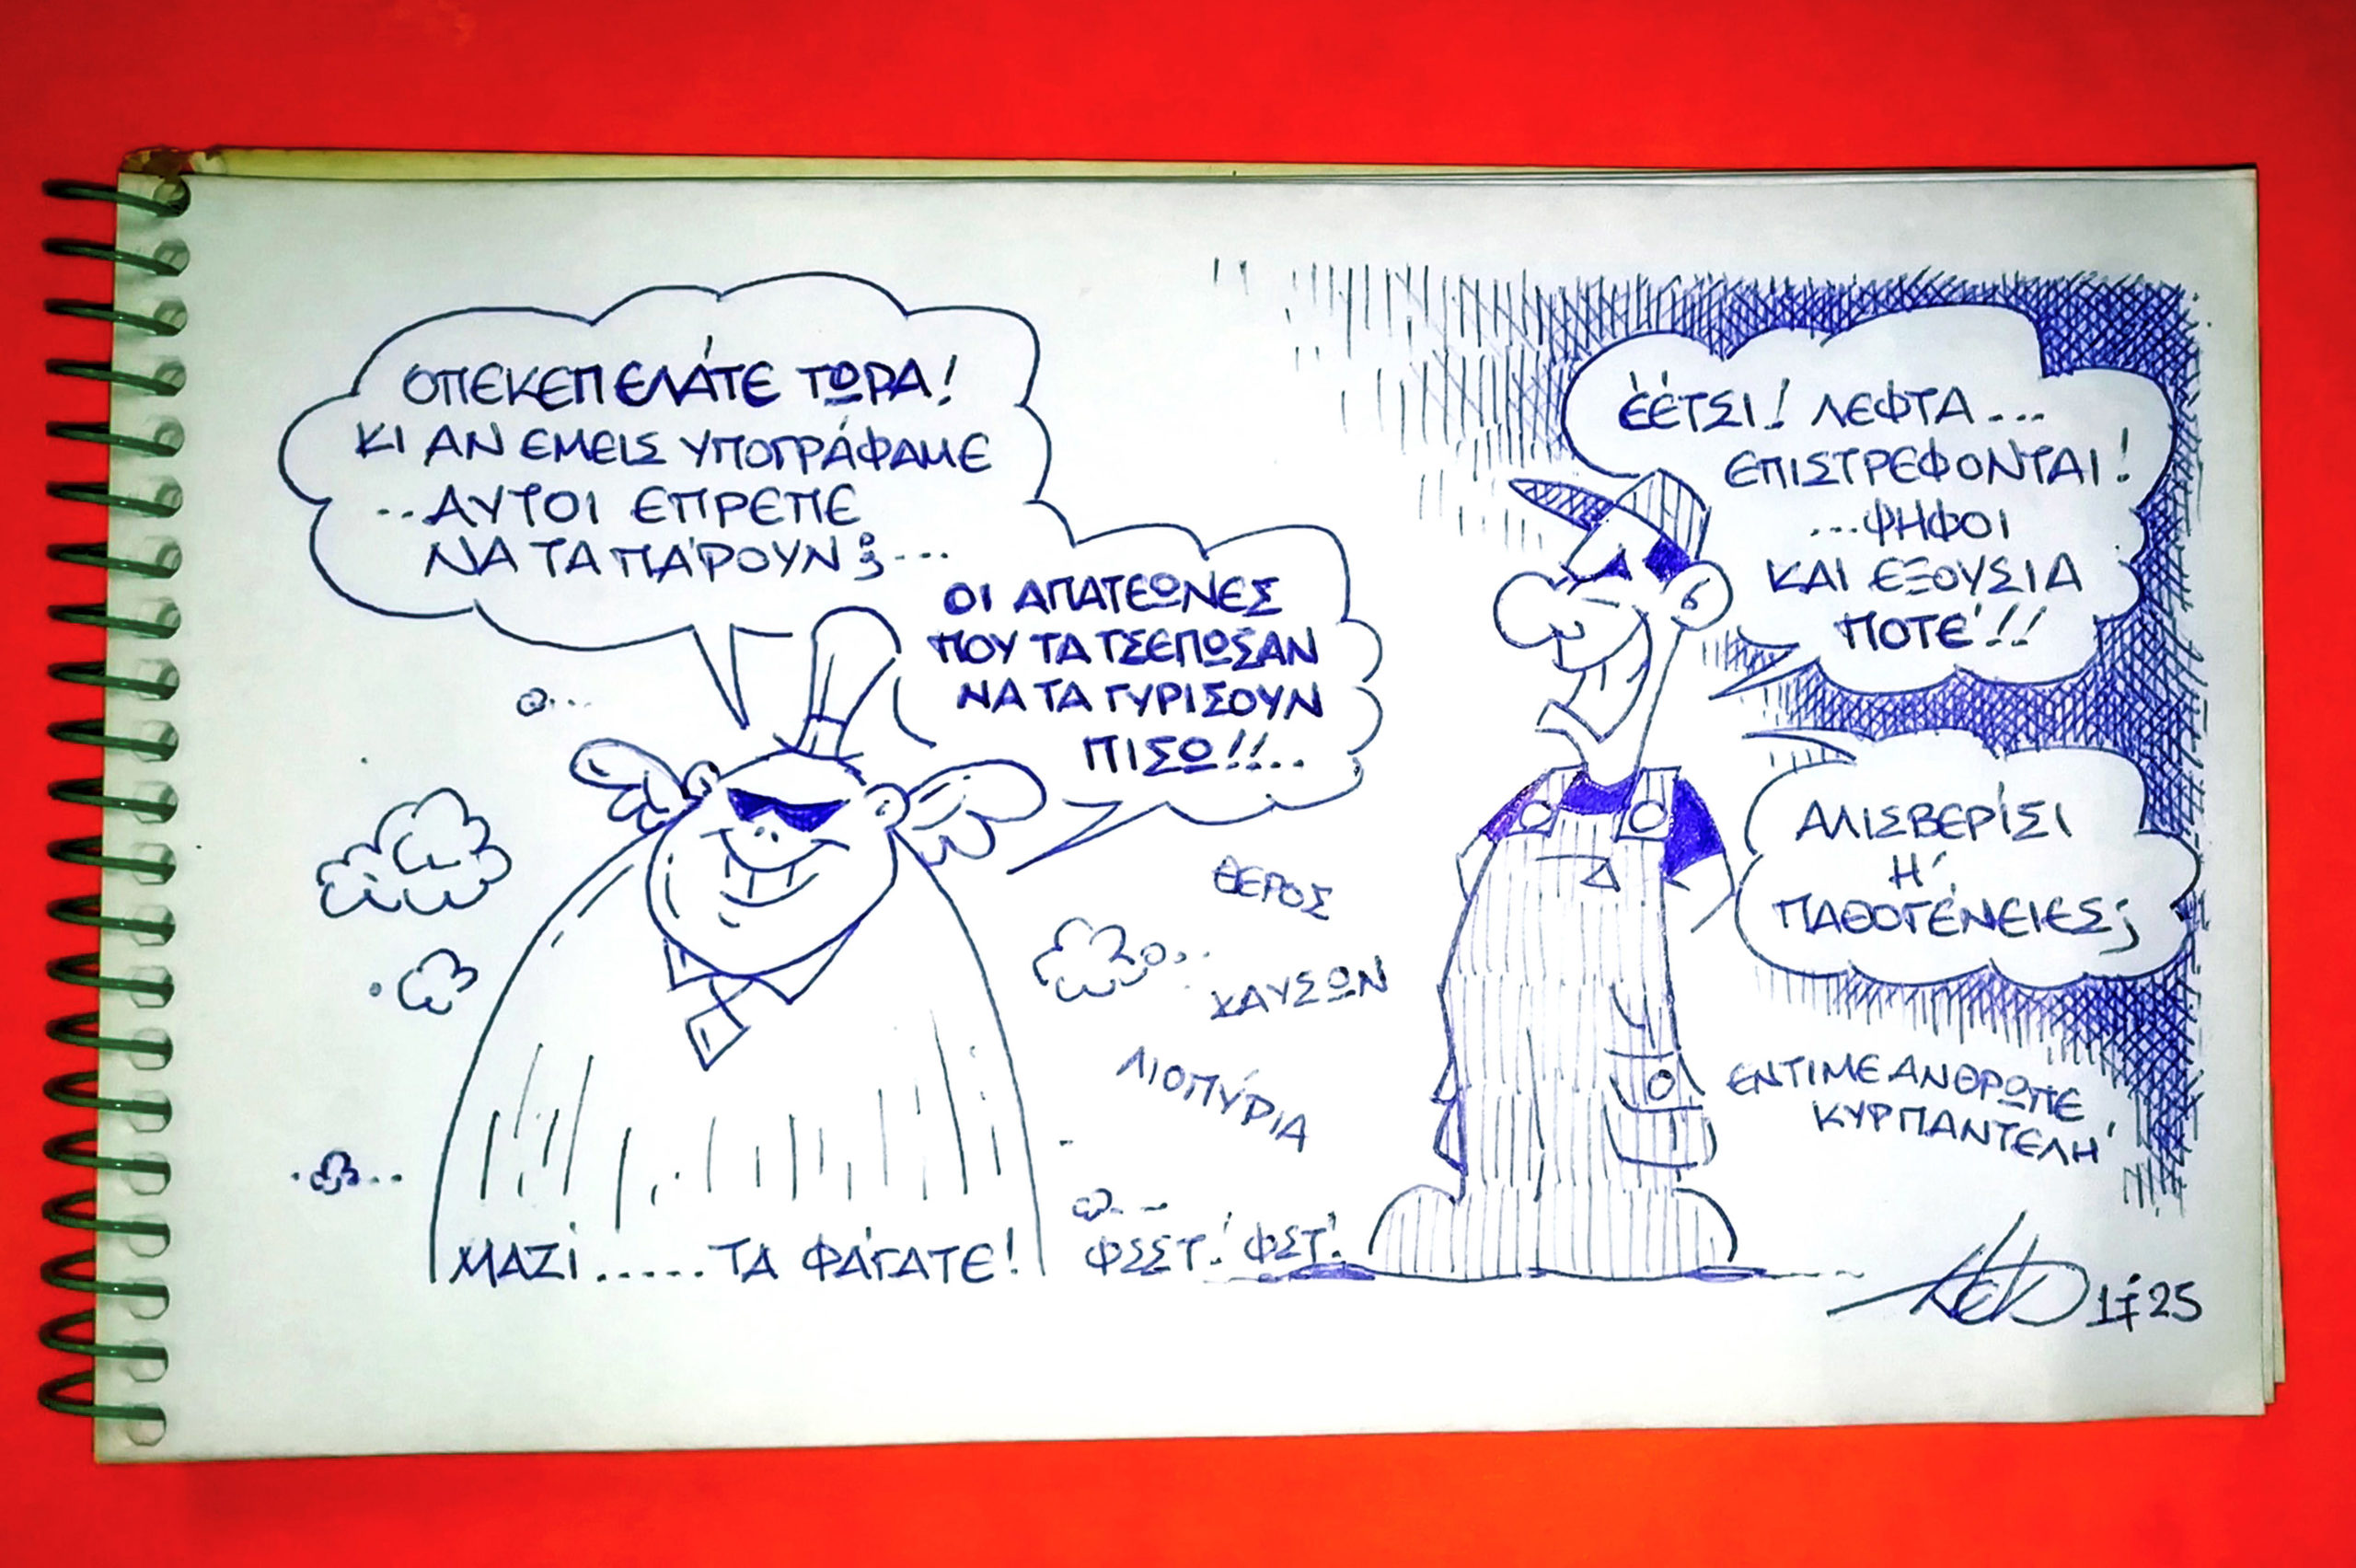 ΟΠΕΚΕΠΕΛΑΤΕ ΤΩΡΑ!
ΚΙ ΑΝ ΕΜΕΙΣ ΥΠΟΓΡΑΦΑΜΕ
..ΑΥΤΟΙ ΕΠΡΕΠΕ
ΝΑ ΤΑ ΠΑΡΟΥΝ;...
ΟΙ ΑΠΑΤΕΩΝΕΣ
ΠΟΥ ΤΑ ΤΣΕΠΩΣΑΝ
ΝΑ ΤΑ ΓΥΡΙΣΟΥΝ
ΠΙΣΩ!!..
ΈΈΤΣΙ! ΛΕΦΤΑ...
ΕΠΙΣΤΡΕΦΟΝΤΑΙ!
...ΨΗΦΟΙ
ΚΑΙ ΕΞΟΥΣΙΑ
ΠΟΤΕ΄!!
ΑΛΙΣΒΕΡΊΣΙ
Η΄
ΠΑΘΟΓΈΝΕΙΕΣ;
ΘΕΡΟΣ
ΚΑΥΣΩΝ
ΛΙΟΠΎΡΙΑ
ΕΝΤΙΜΕ ΑΝΘΡΩΠΕ
ΚΥΡ ΠΑΝΤΕΛΗ΄
ΜΑΖΊ.....ΤΑ ΦΆΓΑΤΕ!
ΦΣΣΤ! ΦΣΤ!
25